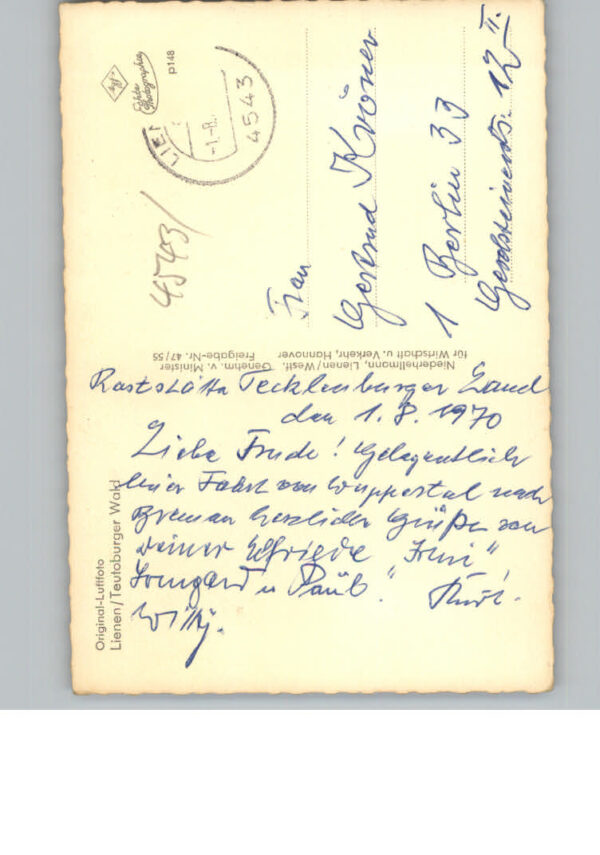 Raststätte Tecklenburger Land
den 1.8.1970
Liebe Trude! Gelegentlich
einer Fahrt von Wuppertal nach
Bremen herzliche Grüße von
deiner Elfriede
Irmgard u Paul.
Willy.
Frau
Gertrud Kröner
1 Berlin 33
12 II.
4543/
4543
Original-Luftfoto
Lienen/Teutoburger Wald
Niederhellmann, Lienen/Westf. Genehm. v. Minister
für Wirtschaft u. Verkehr, Hannover Freigabe-Nr. 47/55
Echte
Photographie
P148